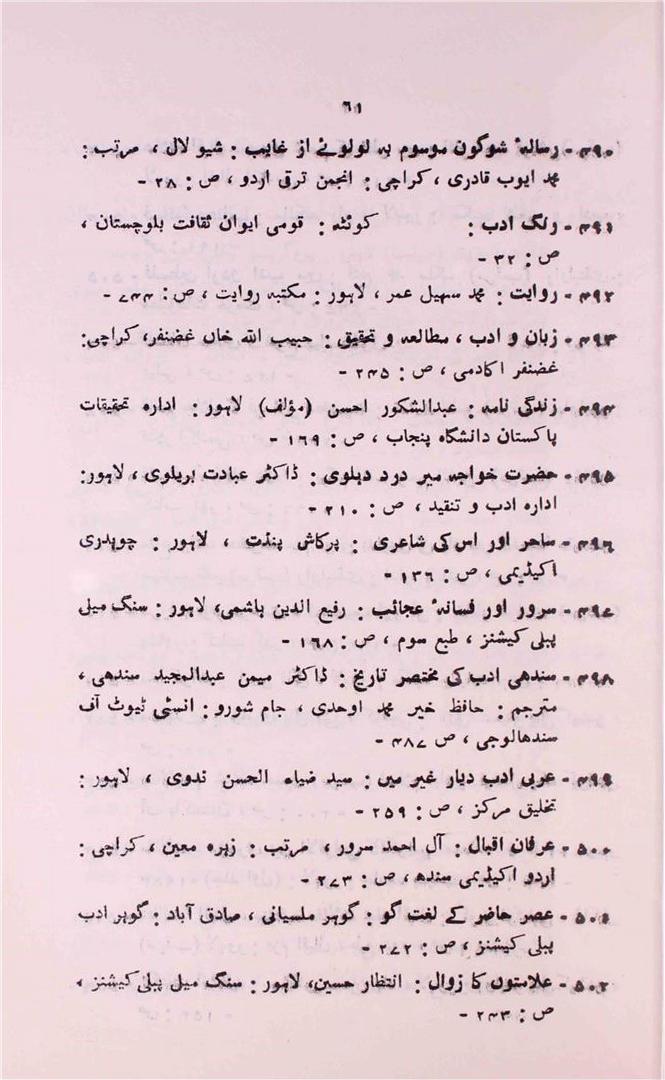 ۶۱
۴۹۰ - رسالۂ شوگون موسوم بہ لولوئے از غایب : شیو لال ، مرتب :
محمد ایوب قادری ، کراچی : انجمن ترقی اردو ، ص : ۲۸ -
۴۹۱ - رنگ ادب : کوئٹہ : قومی ایوان ثقافت بلوچستان ،
ص : ۳۲ -
۴۹۲ - روایت : محمد سہیل عمر ، لاہور : مکتبہ روایت ، ص : ۷۴۴ -
۴۹۳ - زبان و ادب ، مطالعہ و تحقیق : حبیب اللہ خاں غضنفر، کراچی:
غضنفر اکادمی ، ص : ۲۴۵ -
۴۹۴ - زندگی نامہ : عبدالشکور احسن (مؤلف) لاہور : ادارہ تحقیقات
پاکستان دانشگاہ پنجاب ، ص : ۱۶۹ -
۴۹۵ - حضرت خواجہ میر درد دہلوی : ڈاکٹر عبادت بریلوی ، لاہور:
ادارہ ادب و تنقید ، ص : ۲۱۰ -
۴۹۶ - ساحر اور اس کی شاعری : پرکاش پنڈت ، لاہور : چوہدری
اکیڈیمی ، ص : ۱۳۶ -
۴۹۷ - سرور اور فسانۂ عجائب : رفیع الدین ہاشمی، لاہور : سنگ میل
پبلی کیشنز ، طبع سوم ، ص : ۱۶۸ -
۴۹۸ - سندھی ادب کی مختصر تاریخ : ڈاکٹر میمن عبدالمجید سندھی ،
مترجم : حافظ خیر محمد اوحدی ، جام شورو : انسٹی ٹیوٹ آف
سندھالوجی ، ص ۴۸۷ -
۴۹۹ - عربی ادب دیار غیر میں : سید ضیاء الحسن ندوی ، لاہور :
تخلیق مرکز ، ص : ۲۵۹ -
۵۰۰ - عرفان اقبال : آل احمد سرور ، مرتب : زہرہ معین ، کراچی :
اردو اکیڈیمی سندھ ، ص : ۲۷۳ -
۵۰۱ - عصر حاضر کے لغت گو : گوہر ملسیانی ، صادق آباد : گوہر ادب
پبلی کیشنز ، ص : ۲۷۲ -
۵۰۲ - علامتوں کا زوال : انتظار حسین، لاہور : سنگ میل پبلی کیشنز ،
ص : ۲۴۳ -